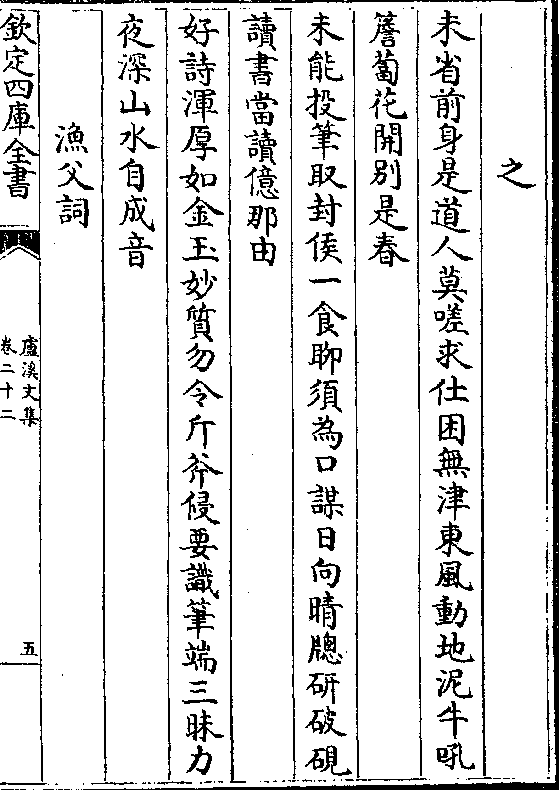 之
未省前身是道人莫嗟求仕困無津東風動地泥牛吼
簷蔔花開別是春
未能投筆取封侯一食聊須為口謀日向晴牎研破硯
讀書當讀億那由
好詩渾厚如金玉妙質勿令斤斧侵要識筆端三昧力
夜深山水自成音
漁父詞
欽定四庫全書
盧溪文集
卷二十二
五